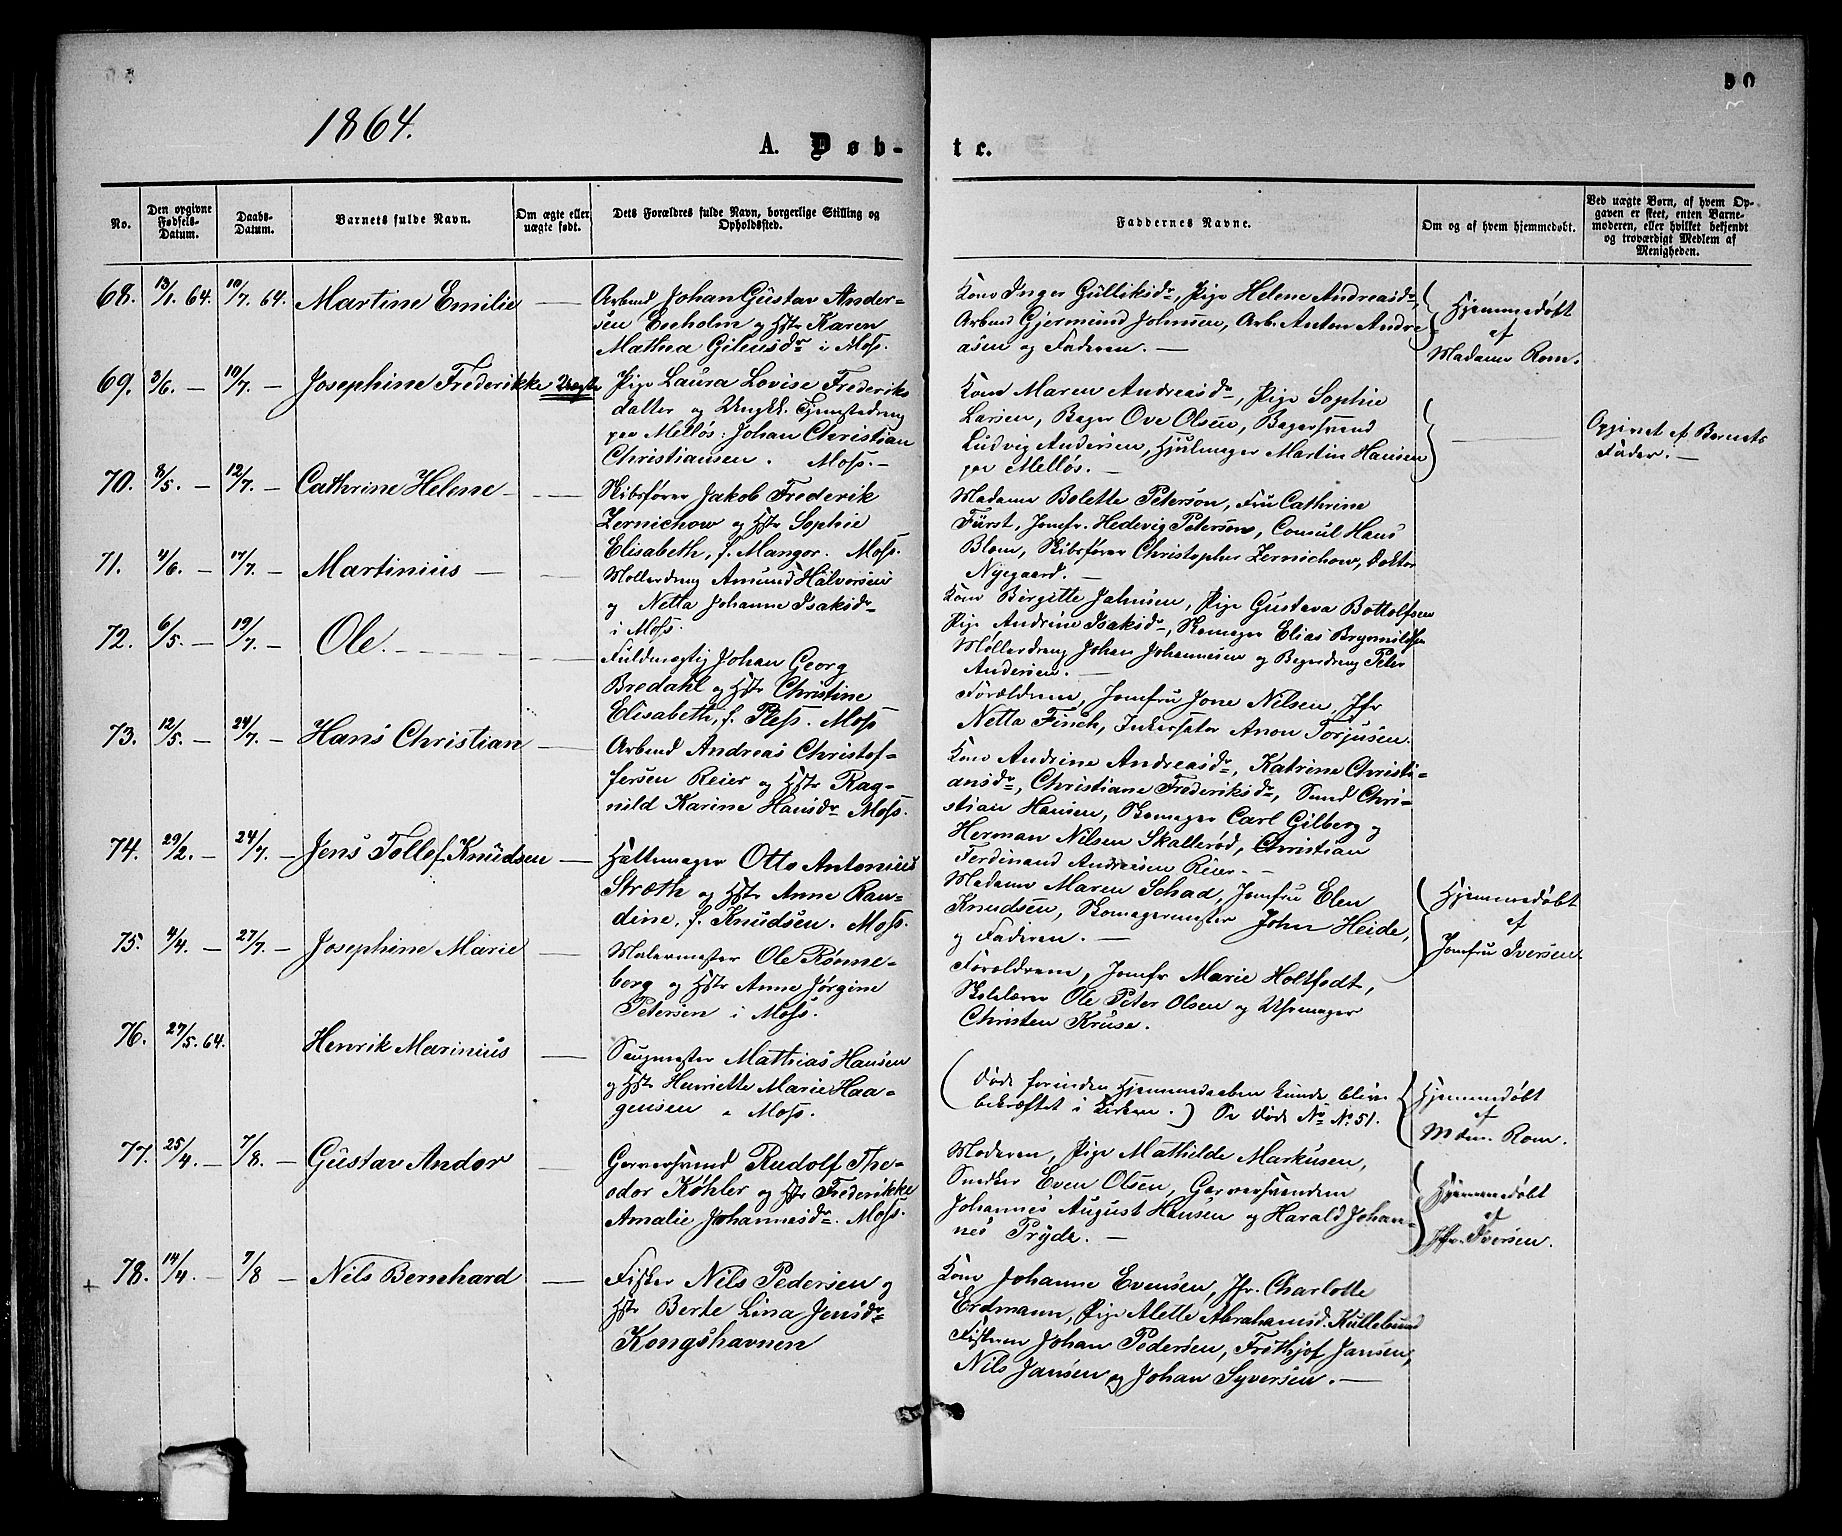 1864.
A. Døb-
te.
30
No.
Den opgivne
Fødsels-
Datum.
Daabs-
Datum.
Barnets fulde Navn.
Om ægte eller
uægte født.
Dets Forældres fulde Navn, borgerlige Stilling og
Opholdssted.
Faddernes Navne.
Om og af hvem hjemmedøbt.
Ved uægte Børn, af hvem Op-
gaven er skeet, enten Barne-
moderen, eller hvilket bekjendt
og troværdigt Medlem af
Menigheden.
68. 13/1. 64. 10/7. 64. Martine Emilie —
Arbmd Johan Gustav Ander-
sen Enholm og Hstr Karen
Mathea Gilusdr i Moss.
Kone Inger Gulliksdr, Pige Helene Andreasdr
Arbmd Gjermund Johnsen, Arb. Anton Andre
asen og Faderen. —
Hjemmedøbt
af
Madame Rom.
69. 3/6. — 10/7. — Josephine Frederikke Uægte
Pige Laura Lovise Frederiks
datter og Ungk. Tjenstedreng
paa Melløs: Johan Christian
Christiansen. Moss. —
Kone Maren Andreasdr, Pige Sophie
Larsen, Bager Ove Olsen, Bagersvend
Ludvig Andersen, Hjulmager Martin Hansen
paa Melløs. —
Opgivet af Barnets
Fader. —
70. 8/5. — 12/7. — Cathrine Helene — —
Skibsfører Jakob Frederik
Zernichow og Hstr Sophie
Elisabeth, f. Mangor. Moss.
Madame Bolette Peterson, Fru Cathrine
Fürst, Jomfr. Hedevig Peterson, Consul Hans
Blom, Skibsfører Christopher Zernichow, Doktor
Nyegaard. —
71. 4/6. — 17/7. — Martinius — —
Møllerdreng Amund Halvorsen
og Netta Johanne Isaksdr
i Moss.
Kone Birgitte Jahnsen, Pige Gustava Bottolfsen
Pige Andrine Isaksdr, Skomager Elias Brynnildsen
Møllerdreng Johan Johannesen og Bagerdreng Peter
Andersen. —
72. 6/5. — 19/7. — Ole. —
Fuldmægtig Johan Georg
Bredahl og Hstr Christine
Elisabeth, f. Pless. Moss
Forældrene, Jomfru Jone Nilsen, Jfr
Netta Finch, Inkassator Anon Torjusen.
73. 12/5. — 24/7. — Hans Christian —
Arbmd Andreas Christof-
fersen Reier og Hstr Rag-
nild Karine Hansdr Moss.
Kone Andrine Andreasdr, Katrine Christi-
ansdr, Christiane Frederiksdr, Smed Chri-
stian Hansen, Skomager Carl Gilberg og
Herman Nilsen Skallerød, Christian
Ferdinand Andreasen Reier. —
74. 29/2. — 24/7. — Jens Tollef Knudsen —
Hattemager Otto Antonius
Stræth og Hstr Anne Ran-
dine, f. Knudsen. Moss.
Madame Maren Schad, Jomfru Elen
Knudsen, Skomagermester John Heide,
og Faderen. —
Hjemmedøbt
af
Jomfru Iversen.
75. 4/4. — 27/7. — Josephine Marie —
Malermester Ole Rønne-
berg og Hstr Anne Jørgine
Petersen i Moss.
Forældrene, Jomfr Marie Holtfodt,
Skolelærer Ole Peter Olsen og Uhrmager
Christen Kruse.
76. 27/5. 64. Henrik Marinius —
Saugmester Mathias Hansen
og Hstr Henriette Marie Haa-
gensen i Moss.
(Døde forinden Hjemmedaaben kunde blive
bekræftet i Kirken.) Se døde No No. 51.
Hjemmedøbt
af
Mdm. Rom.
77. 25/4. — 7/8. — Gustav Andor —
Garversvend Rudolf The-
odor Køhler og Hstr Frederikke
Amalie Johannesdr. Moss.
Moderen, Pige Mathilde Markusen,
Snedker Even Olsen, Garversvendene
Johannes August Hansen og Harald Johan-
nes Pryde. —
Hjemmedøbt
af
Jfr. Iversen.
+ 78. 14/4. — 7/8 — Nils Bernhard —
Fisker Nils Pedersen og
Hstr Berte Lina Jensdr
Kongshavnen
Kone Johanne Evensen, Jfr. Charlotte
Erdmann, Pige Alette Abrahamsd. Kullebund
Fiskerne Johan Pedersen, Frithjof Jansen,
Nils Jansen og Johan Syversen. —